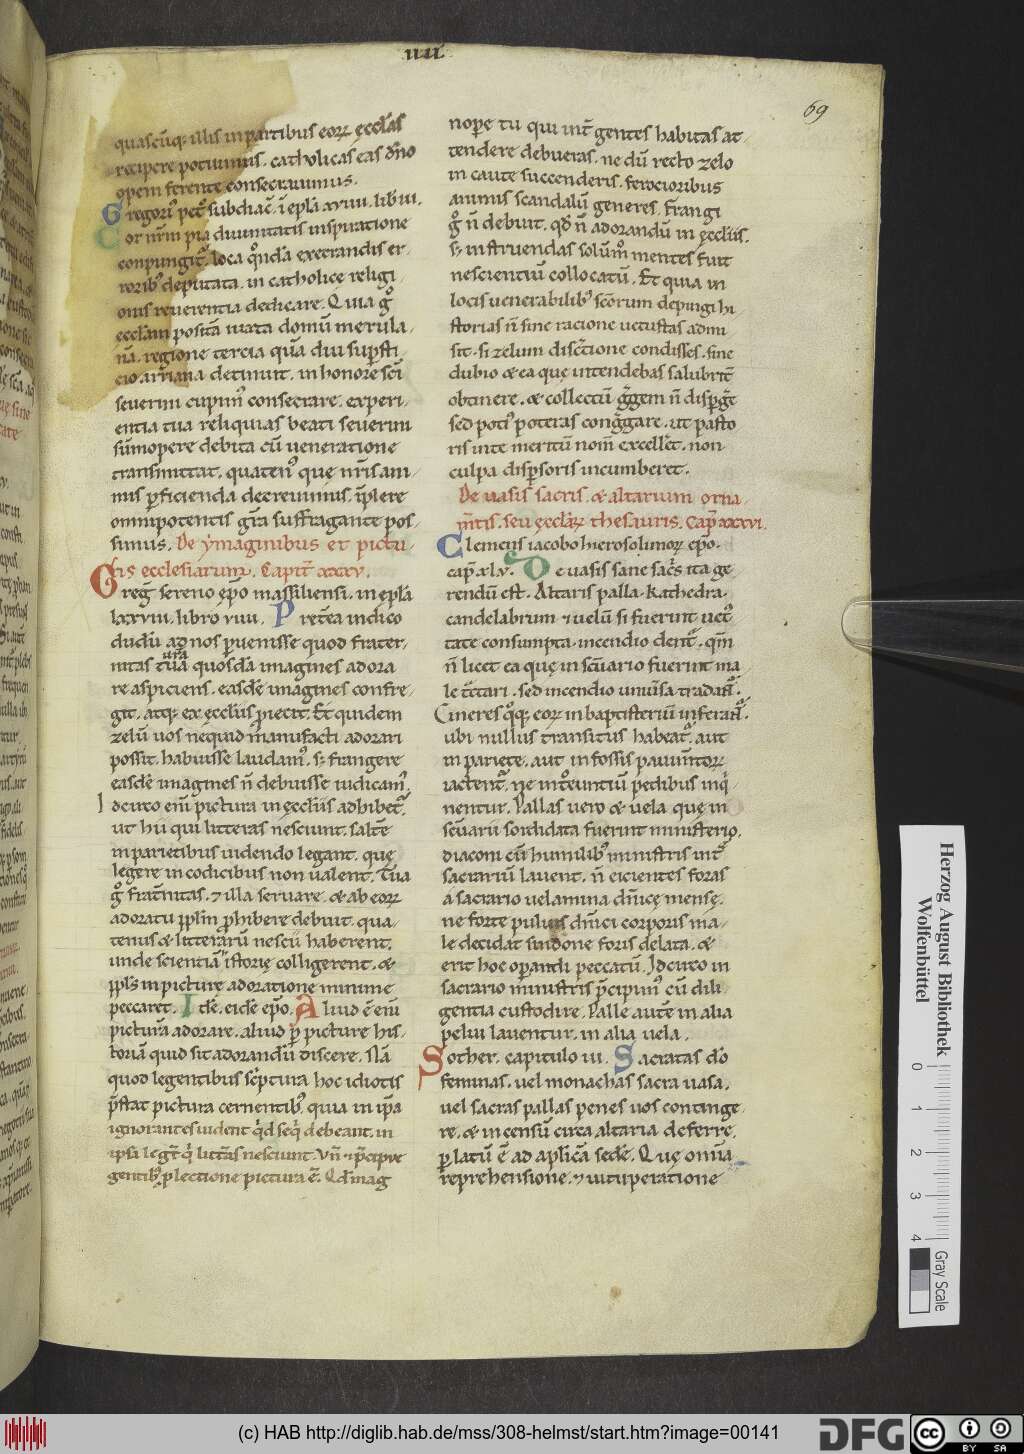 IIII
69
quascūq; illis in partibus eorꝝ ęccl̄as
recipere potuimus. catholicas eas dn̄o
opem ferente consecrauimus.
Gregoriꝰ pet̄ subdiac̄. ī epl̄a xviiii. lib̄ iii.
Cor nr̄m pia diuinitatis inspiratione
conpungit᷑. loca q̄nda execrandis er-
roribꝰ deputata. in catholice religi
onis reuerentia dedicare. Quia gͦ
eccl̄am positā iuxta domū merula-
nā. regione tercia quā diu supsti-
cio arriana detinuit. in honore sc̄i
seuerini cupimꝰ consecrare. experi-
entia tua reliquias beati seuerini
sūmopere debita cū ueneratione
transmittat. quatenꝰ que nr̄is ani-
mis ꝑficienda decreuimus. īplere
omnipotentis gr̄a suffragante pos-
simus. De ymaginibus et pictu-
ris ecclesiarum. Capit̄ xxxv.
Greḡ sereno ep̄o massiliensi. in epl̄a
lxxviii. libro viii. Pretea indico
dudū ad nos ꝑuenisse quod frater-
nitas tua ura quosdā imagines adora
re aspiciens. easdē imagines confre-
git. atq; ex ęccl̄iis ꝓiecit. Et quidem
zelū uos nequid manufacti adorari
possit. habuisse laudamꝰ. s; frangere
easdē imagines n̄ debuisse iudicamꝰ.
Idcirco eni pictura in ęccl̄iis adhibet᷑.
ut hii qui litteras nesciunt. saltē
in parietibus uidendo legant. que
legere in codicibus non ualent. Tua
gͦ frat̄nitas. ⁊ illa seruare. & ab eorꝝ
adoratu ppl̄m ꝓhibere debuit. qua-
tenus & litterarū nescii haberent.
unde scientiā istorie colligerent. &
ppl̄s in picture adoratione minime
peccaret. Idē. eidē ep̄o. Aliud ē eni
pictura adorare. aliud ꝑ picture his-
toriā quid sit adorandū discere. Nā
quod legentibus sc̄ptura hoc idiotis
p̄stat pictura cernentibꝰ. quia in ip̄a
ignorantes uident q̄d seq̄ debeant. in
ipsa legt̄ q̄ litt̄as nesciunt. Vn̄ ⁊ p̄cipue
gentibꝰ ꝓ lectione pictura ē. Qd̄ mag
nope tu qui int̄ gentes habitas at-
tendere debueras. ne dū recto zelo
in caute succenderis. ferocioribus
animis scandalū generes. Frangi
gͦ n̄ debuit. qd̄ n̄ adorandū in ęccl̄iis.
s; instruendas solūmͦ mentes fuit
nescientiū collocatū. Et quia in
locis uenerabilibꝰ sc̄orum depingi hi-
storias n̄ sine racione uetustas admi
sit. si zelum discr̄tione condisses. sine
dubio & ea que intendebas salubrit̄
obtinere. & collectū ggem n̄ dispḡe
sed potiꝰ poteras congḡare. ut pasto
ris inte meritū nom̄ excellet. non
culpa dispsoris incumberet.
De uasis sacris. & altarium orna-
m̄tis. seu ęccl̄arꝝ thesauris. Cap̄ xxxvi.
Clemens iacobo hierosolimorꝝ ep̄o.
cap̄ xl.v. De uasis sane sac̄s ita ge-
rendū est. Altaris palla. kathedra.
candelabrum & uelū si fuerint uet̄
tate consumpta. incendio dent᷑. qm̄
n̄ licet ea que in sc̄uario fuerint ma
le t̄ctari. sed incendio uniūsa tradant᷑.
Cineres q̄q; eorꝝ in baptisteriū inferant᷑.
ubi nullus transitus habeat᷑. aut
in pariete. aut in fossis pauimtorꝝ
iactent᷑. ne int̄euntiū pedibus inq̄-
nentur. Pallas uero & uela que in
sc̄uarii sordidata fuerint ministerio.
diaconi cū humilibꝰ ministris int̄
sacrariū lauent. n̄ eicientes foras
a sacrario uelamina dn̄ice mense.
ne forte puluis dn̄ici corporis ma-
le decidat sindone foris delata. &
erit hoc opanti peccatū. Idcirco in
sacrario ministris p̄cipimꝰ cū dili-
gentia custodire. Palle autē in alia
pelui lauentur. in alia uela.
Sother. capitulo iii. Sacratas dō
feminas. uel monachas sacra uasa.
uel sacras pallas penes uos continge-
re. & incensū circa altaria deferre.
ꝑlatū ē ad aplicā sedē. Que omīa
reprehensione. ⁊ uituperatione
Herzog August Bibliothek
Wolfenbüttel
0 1 2 3 4
Gray Scale
(c) HAB http://diglib.hab.de/mss/308-helmst/start.htm?image=00141
DFG
cc BY SA